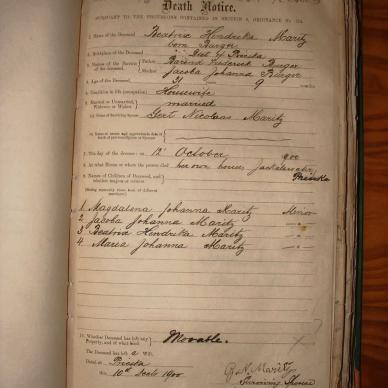 Death Notice.
PURSUANT TO THE PROVISIONS CONTAINED IN SECTION 9, ORDINANCE No. 104.
1. Name of the Deceased Beatrix Hendrika Maritz
born Burger
2. Birthplace of the Deceased Dist of Prieska
3. Names of the Parents of the deceased. Father, Barend Frederick Burger
Mother, Jacoba Johanna Burger
4. Age of the Deceased 9 months
5. Condition in life (occupation) Housewife
6. Married or Unmarried, Widower or Widow married
(a) Name of Surviving Spouse Gert Nicolaas Maritz
7. The day of the decease: on 12 October 1900
8. At what House or where the person died her own house,
Prieska
9. Names of Children of Deceased, and whether majors or minors
1 Magdalena Johanna Maritz Minor
2 Jacoba Johanna Maritz
3 Beatrix Hendrika Maritz
4 Maria Johanna Maritz
10. Whether Deceased has left any Property, and of what kind Movable.
The Deceased has left a Will.
Dated at Prieska
this 10th 1900
G. N. Maritz
Surviving Spouse